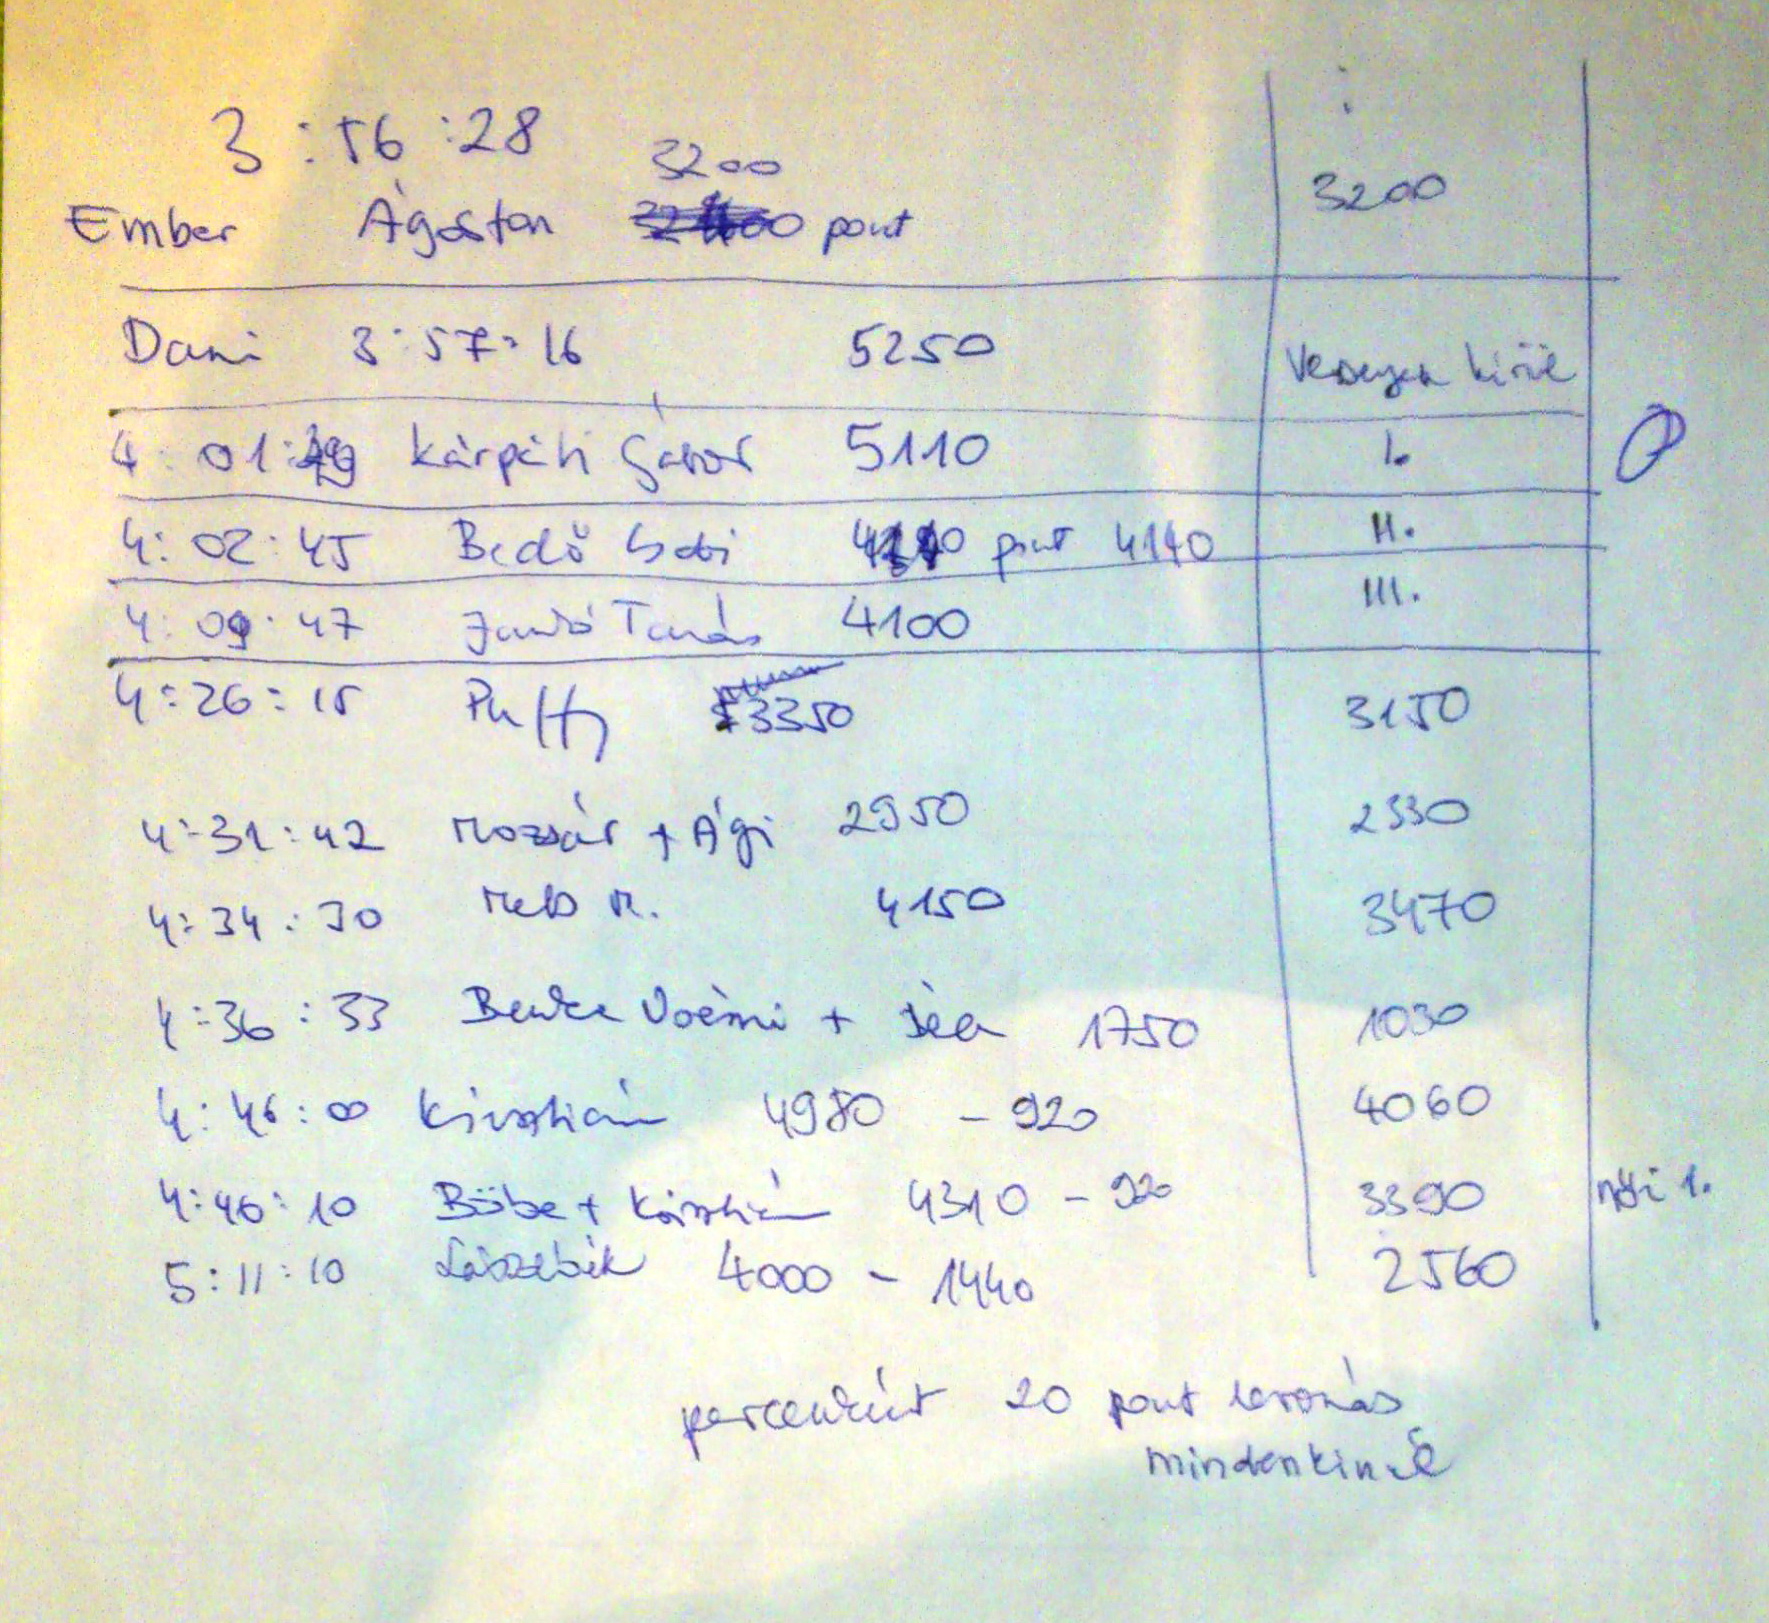 3:56:28
3200
Ember Ágoston pont 3200
Dani 3:57:16 5250 Versenyen kívül
4:01: Kárpáti Gábor 5110 I.
4:02:45 Bedő pont 4140 II.
4:09:47 Tamás 4100 III.
4:26:15 Puffy 3350 3150
4:31:42 Mozsár + Ági 2950 2330
4:34:30 4150 3470
4:36:33 Noémi + 1750 1030
4:46:00 Krisztián 4980 - 920 4060
4:46:10 Böbe + Krisztián 4310 - 920 3390 női 1.
5:11:10 4000 - 1440 2560
percenként 20 pont levonás
mindenkinél